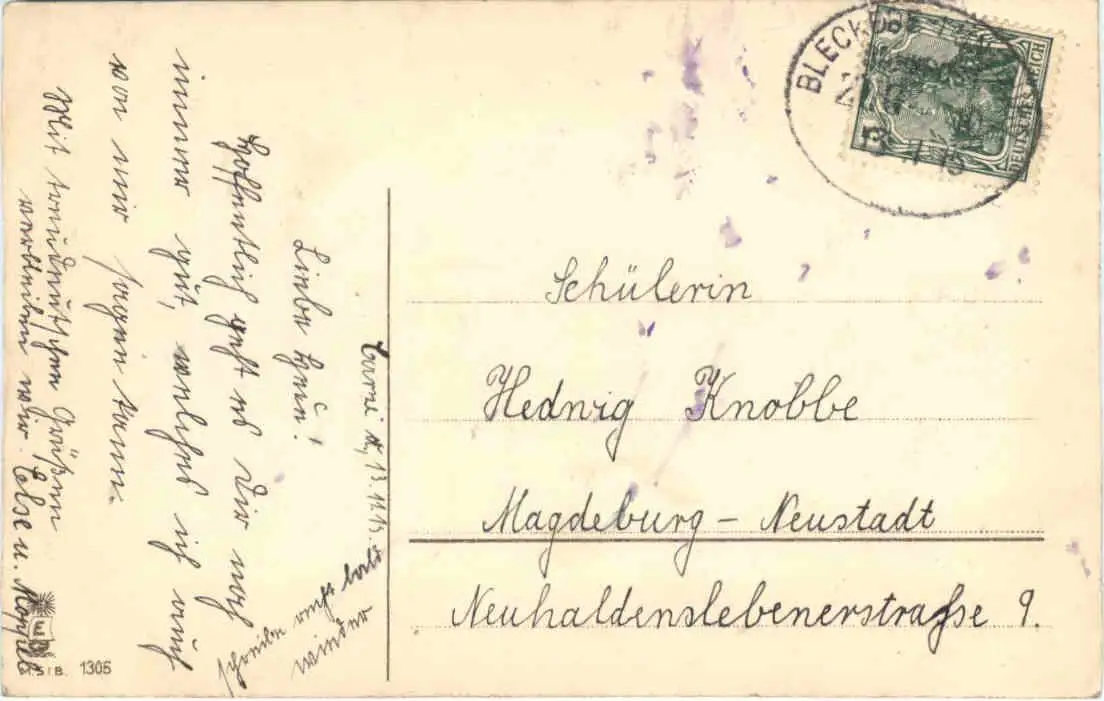 13.12.13.
Liebe Hede!
Hoffentlich geht es Dir noch
immer gut, welches ich auch
von mir sagen kann.
Mit freundlichen Grüßen
verbleiben wir Else u.
Schreibe recht bald
wieder
BLECK
5 5
DEUTSCHES REICH
Schülerin
Hedwig Knobbe
Magdeburg – Neustadt
Neuhaldenslebenerstraße 9.
1305